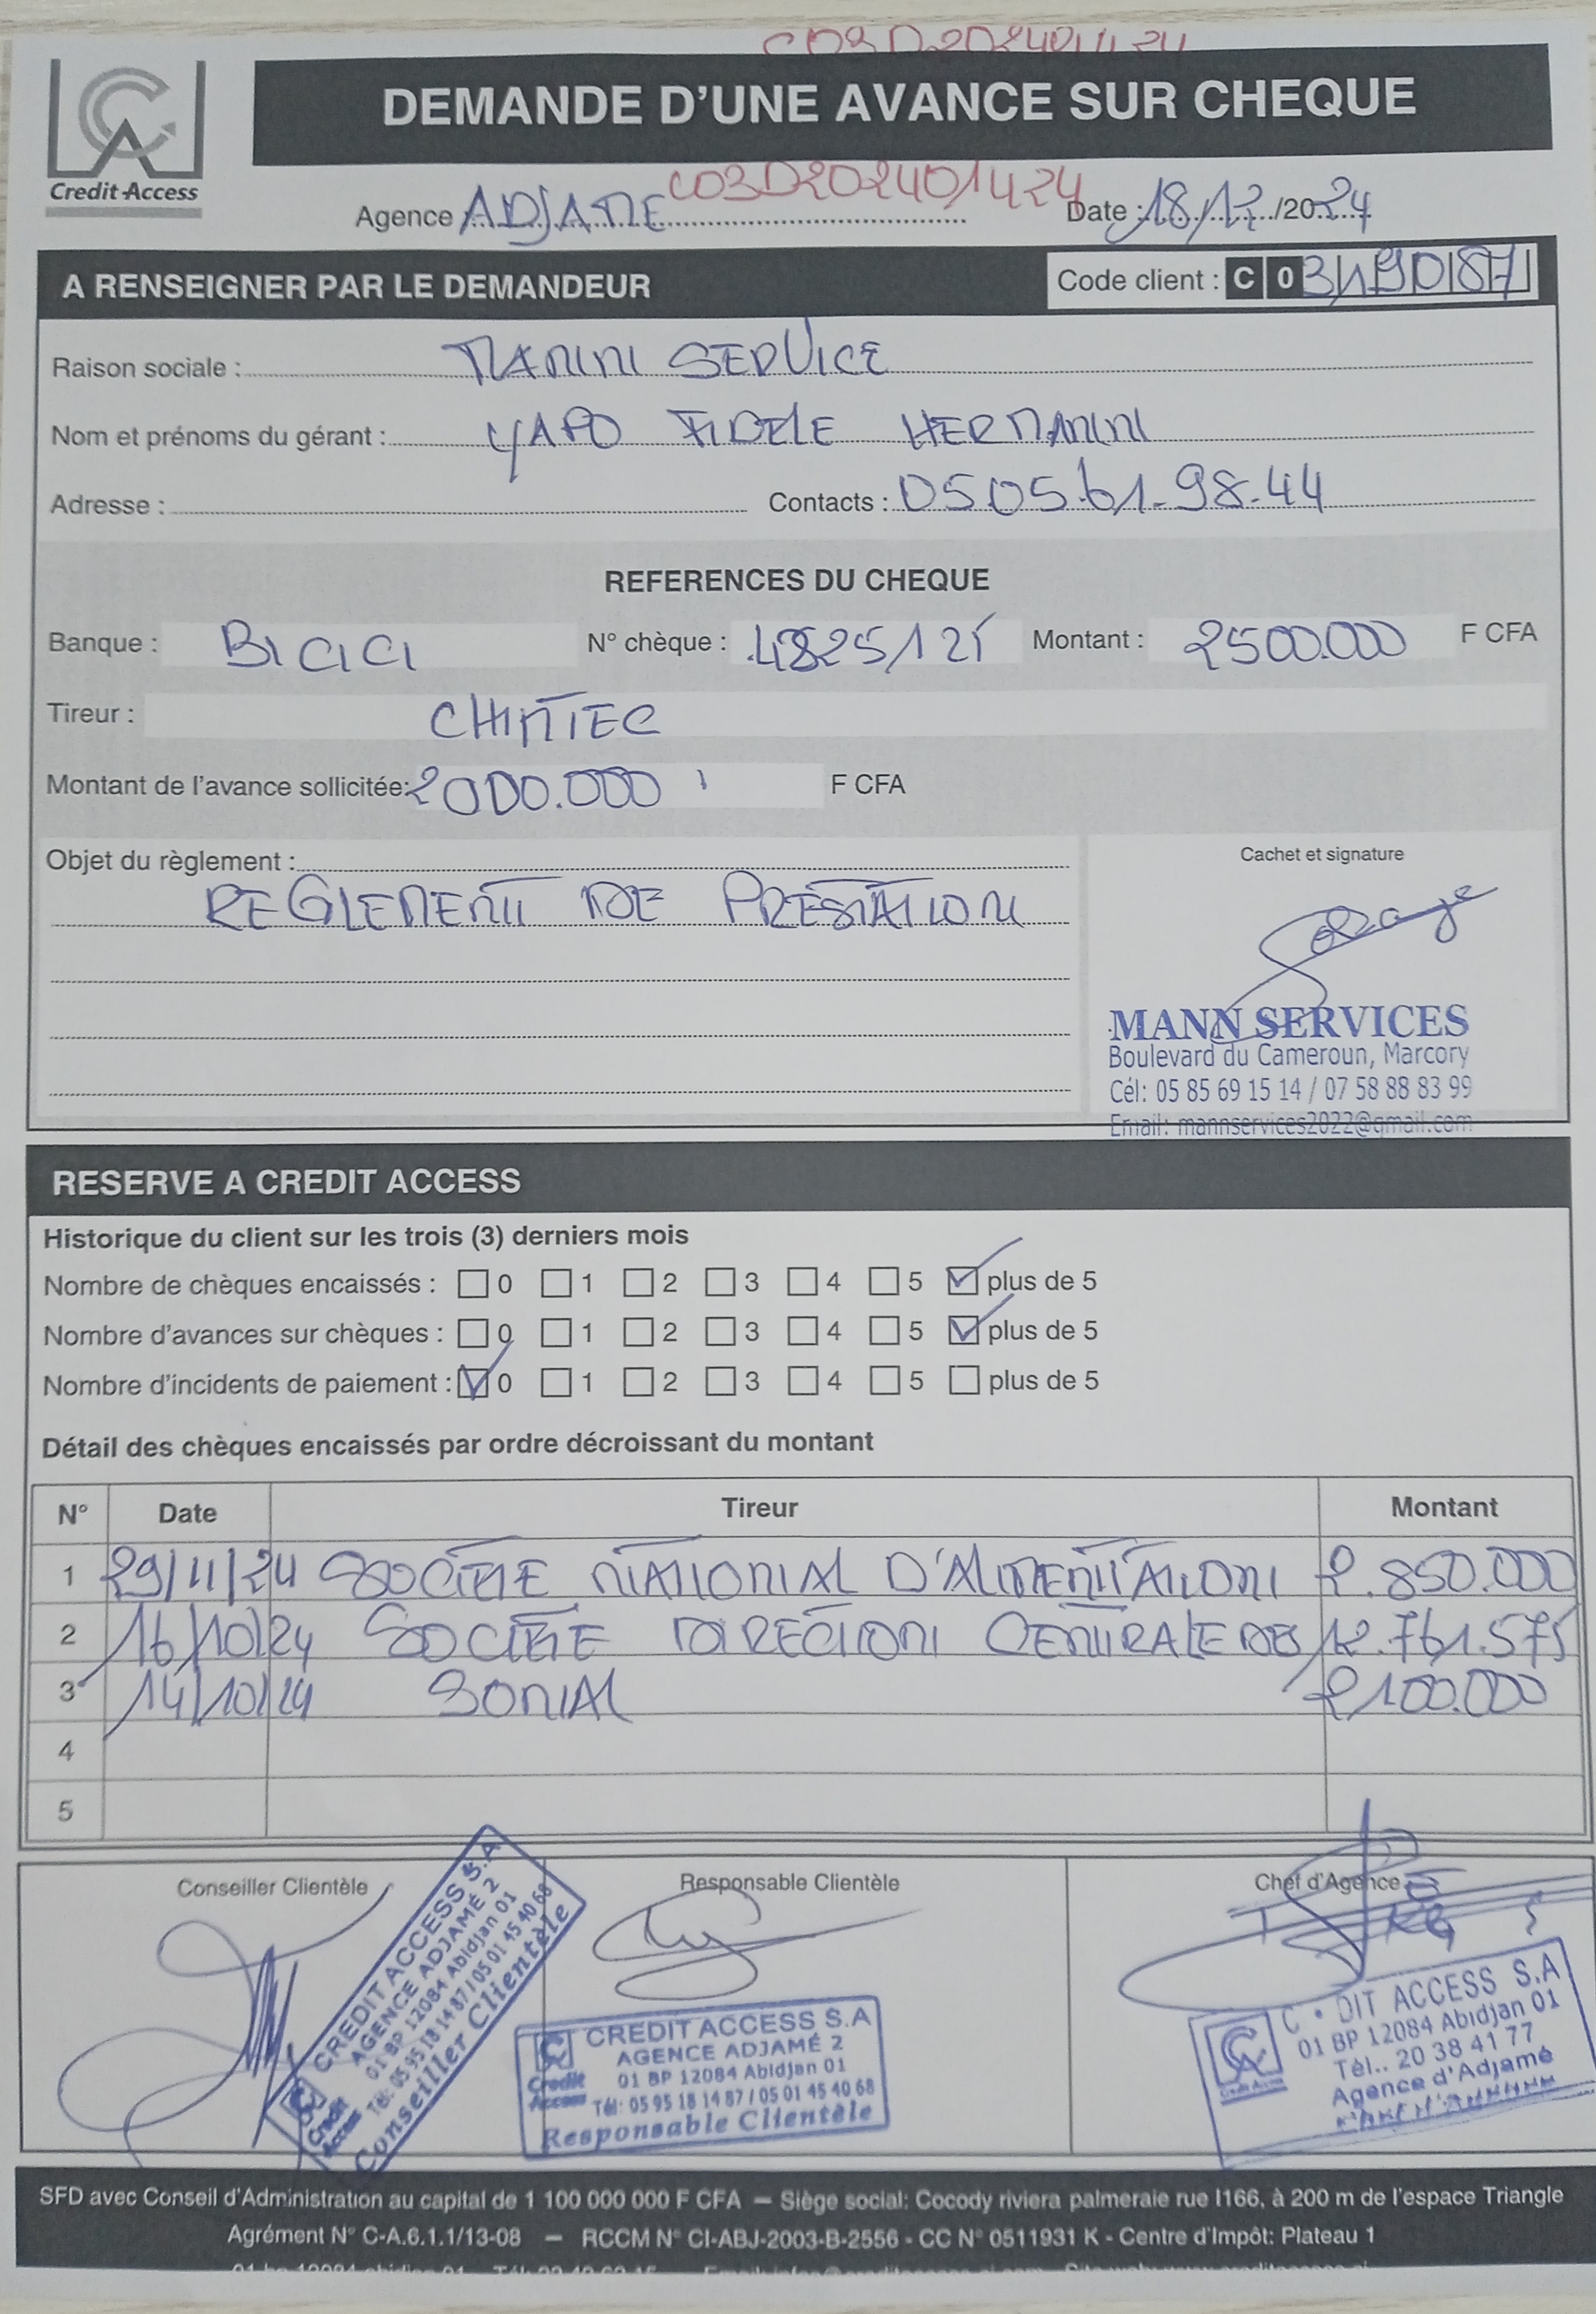 DEMANDE D'UNE AVANCE SUR CHEQUE
Credit Access
C03D202401424
Agence ADJAME Date : 18/12/2024
A RENSEIGNER PAR LE DEMANDEUR Code client : C 0 3190187
Raison sociale : MANN SERVICE
Nom et prénoms du gérant : YAPO FIDELE HERMANN
Adresse : Contacts : 0505.61.98.44
REFERENCES DU CHEQUE
Banque : BICICI N° chèque : 4825121 Montant : 2500.000 F CFA
Tireur : CHIMTEC
Montant de l'avance sollicitée: 2000.000 F CFA
Objet du règlement : Cachet et signature
REGLEMENT DE PRESTATION
MANN SERVICES
Boulevard du Cameroun, Marcory
Cél: 05 85 69 15 14 / 07 58 88 83 99
Email: mannservices2022@gmail.com
RESERVE A CREDIT ACCESS
Historique du client sur les trois (3) derniers mois
Nombre de chèques encaissés : 0 1 2 3 4 5 plus de 5
Nombre d'avances sur chèques : 0 1 2 3 4 5 plus de 5
Nombre d'incidents de paiement : 0 1 2 3 4 5 plus de 5
Détail des chèques encaissés par ordre décroissant du montant
N° Date Tireur Montant
1 29/11/24 SOCIETE NATIONAL D'ALIMENTATION 2.850.000
2 16/10/24 SOCIETE DIRECTION CENTRALE DES 12.761.575
3 14/10/24 SONIAL 2100.000
4
5
Conseiller Clientèle Responsable Clientèle Chef d'Agence
CREDIT ACCESS S.A
AGENCE ADJAMÉ 2
01 BP 12084 Abidjan 01
Tél: 05 95 18 14 87 / 05 01 45 40 68
Conseiller Clientèle
Credit Access
CREDIT ACCESS S.A
AGENCE ADJAMÉ 2
01 BP 12084 Abidjan 01
Tél: 05 95 18 14 87 / 05 01 45 40 68
Responsable Clientèle
Credit Access
DIT ACCESS S.A
01 BP 12084 Abidjan 01
Tél.. 20 38 41 77
Agence d'Adjamé
SFD avec Conseil d'Administration au capital de 1 100 000 000 F CFA – Siège social: Cocody riviera palmeraie rue I166, à 200 m de l'espace Triangle
Agrément N° C-A.6.1.1/13-08 – RCCM N° CI-ABJ-2003-B-2556 - CC N° 0511931 K - Centre d'Impôt: Plateau 1